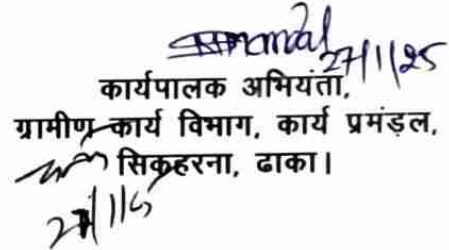 27/1/25
कार्यपालक अभियंता,
ग्रामीण कार्य विभाग, कार्य प्रमंड़ल,
सिकरहना, ढाका।